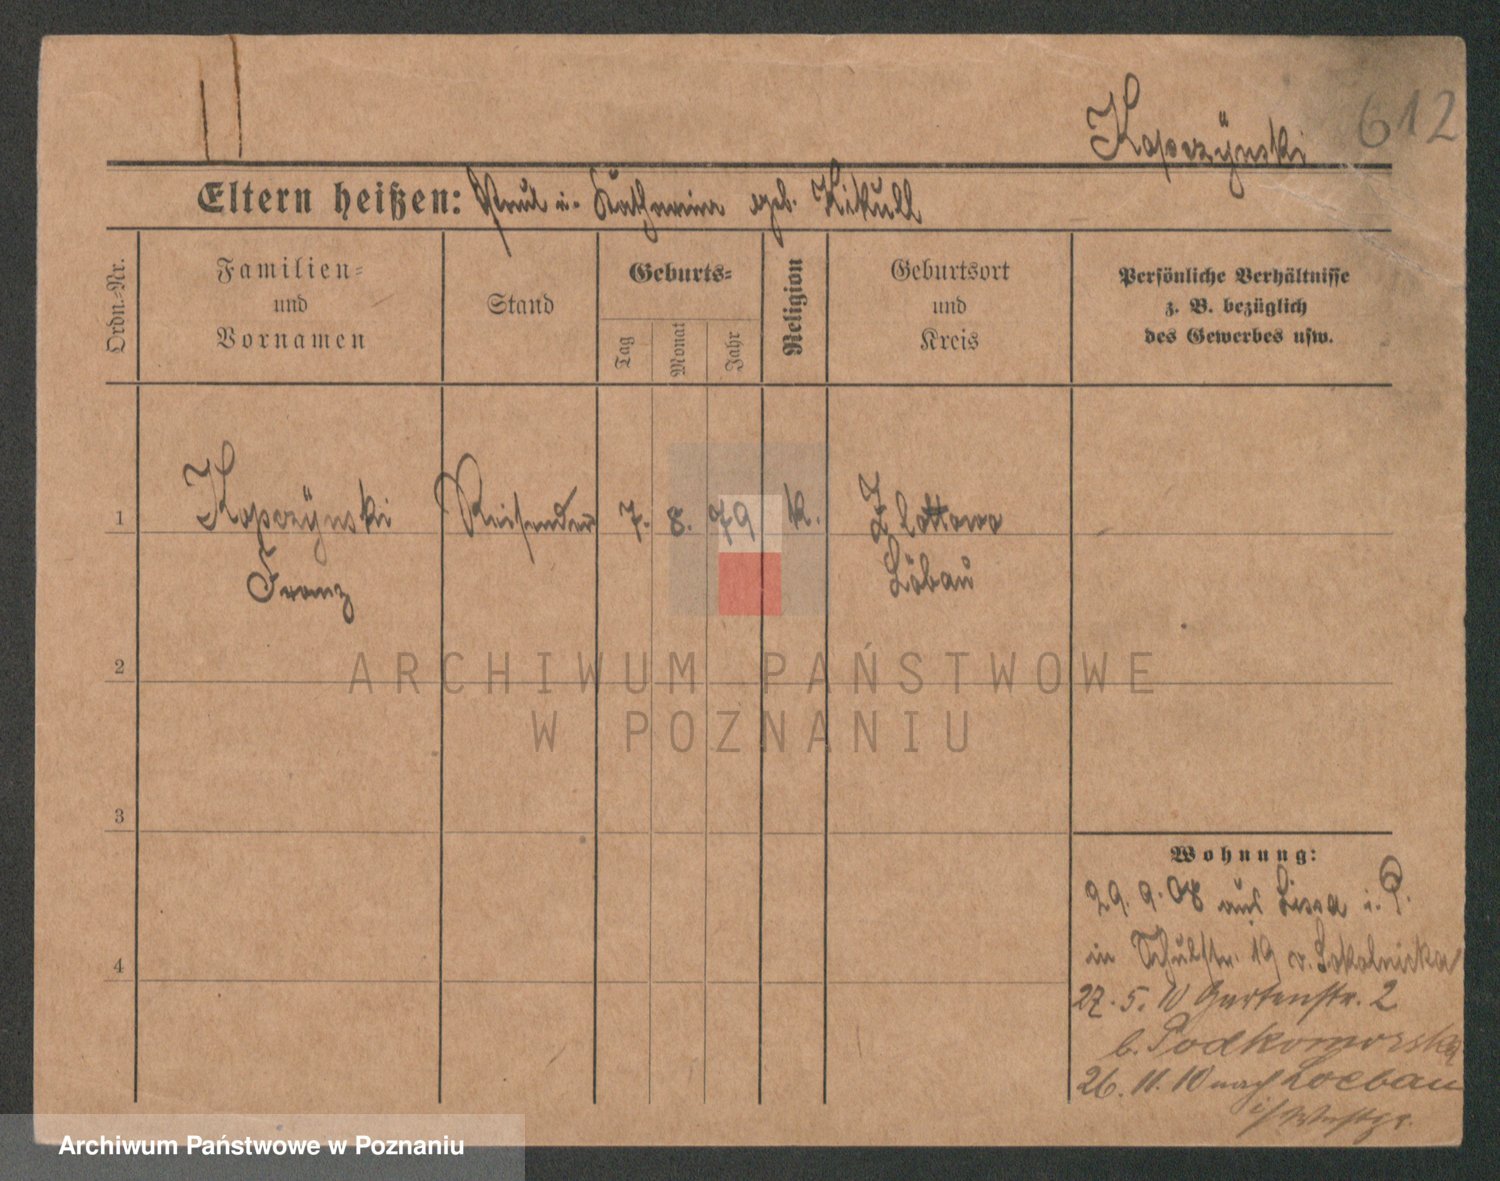 Kopczÿnski 612
Eltern heißen: Paul u. Katharina geb. Kikull
Ordn.-Nr.
Familien-
und
Vornamen
Stand
Geburts-
Tag
Monat
Jahr
Religion
Geburtsort
und
Kreis
Persönliche Verhältnisse
z. B. bezüglich
des Gewerbes usw.
1 Kopczÿnski Reisender 7. 8. 79 k. Zlottowo
Franz Löbau
2
3
4
Wohnung:
29. 9. 08 aus Lissa i. P.
in Schulstr. 19 v. Sokolnicka
27. 5. 10 Gartenstr. 2
b. Podkomorska
26. 11. 10 nach Loebau
i/ Westpr.
ARCHIWUM PAŃSTWOWE
W POZNANIU
Archiwum Państwowe w Poznaniu